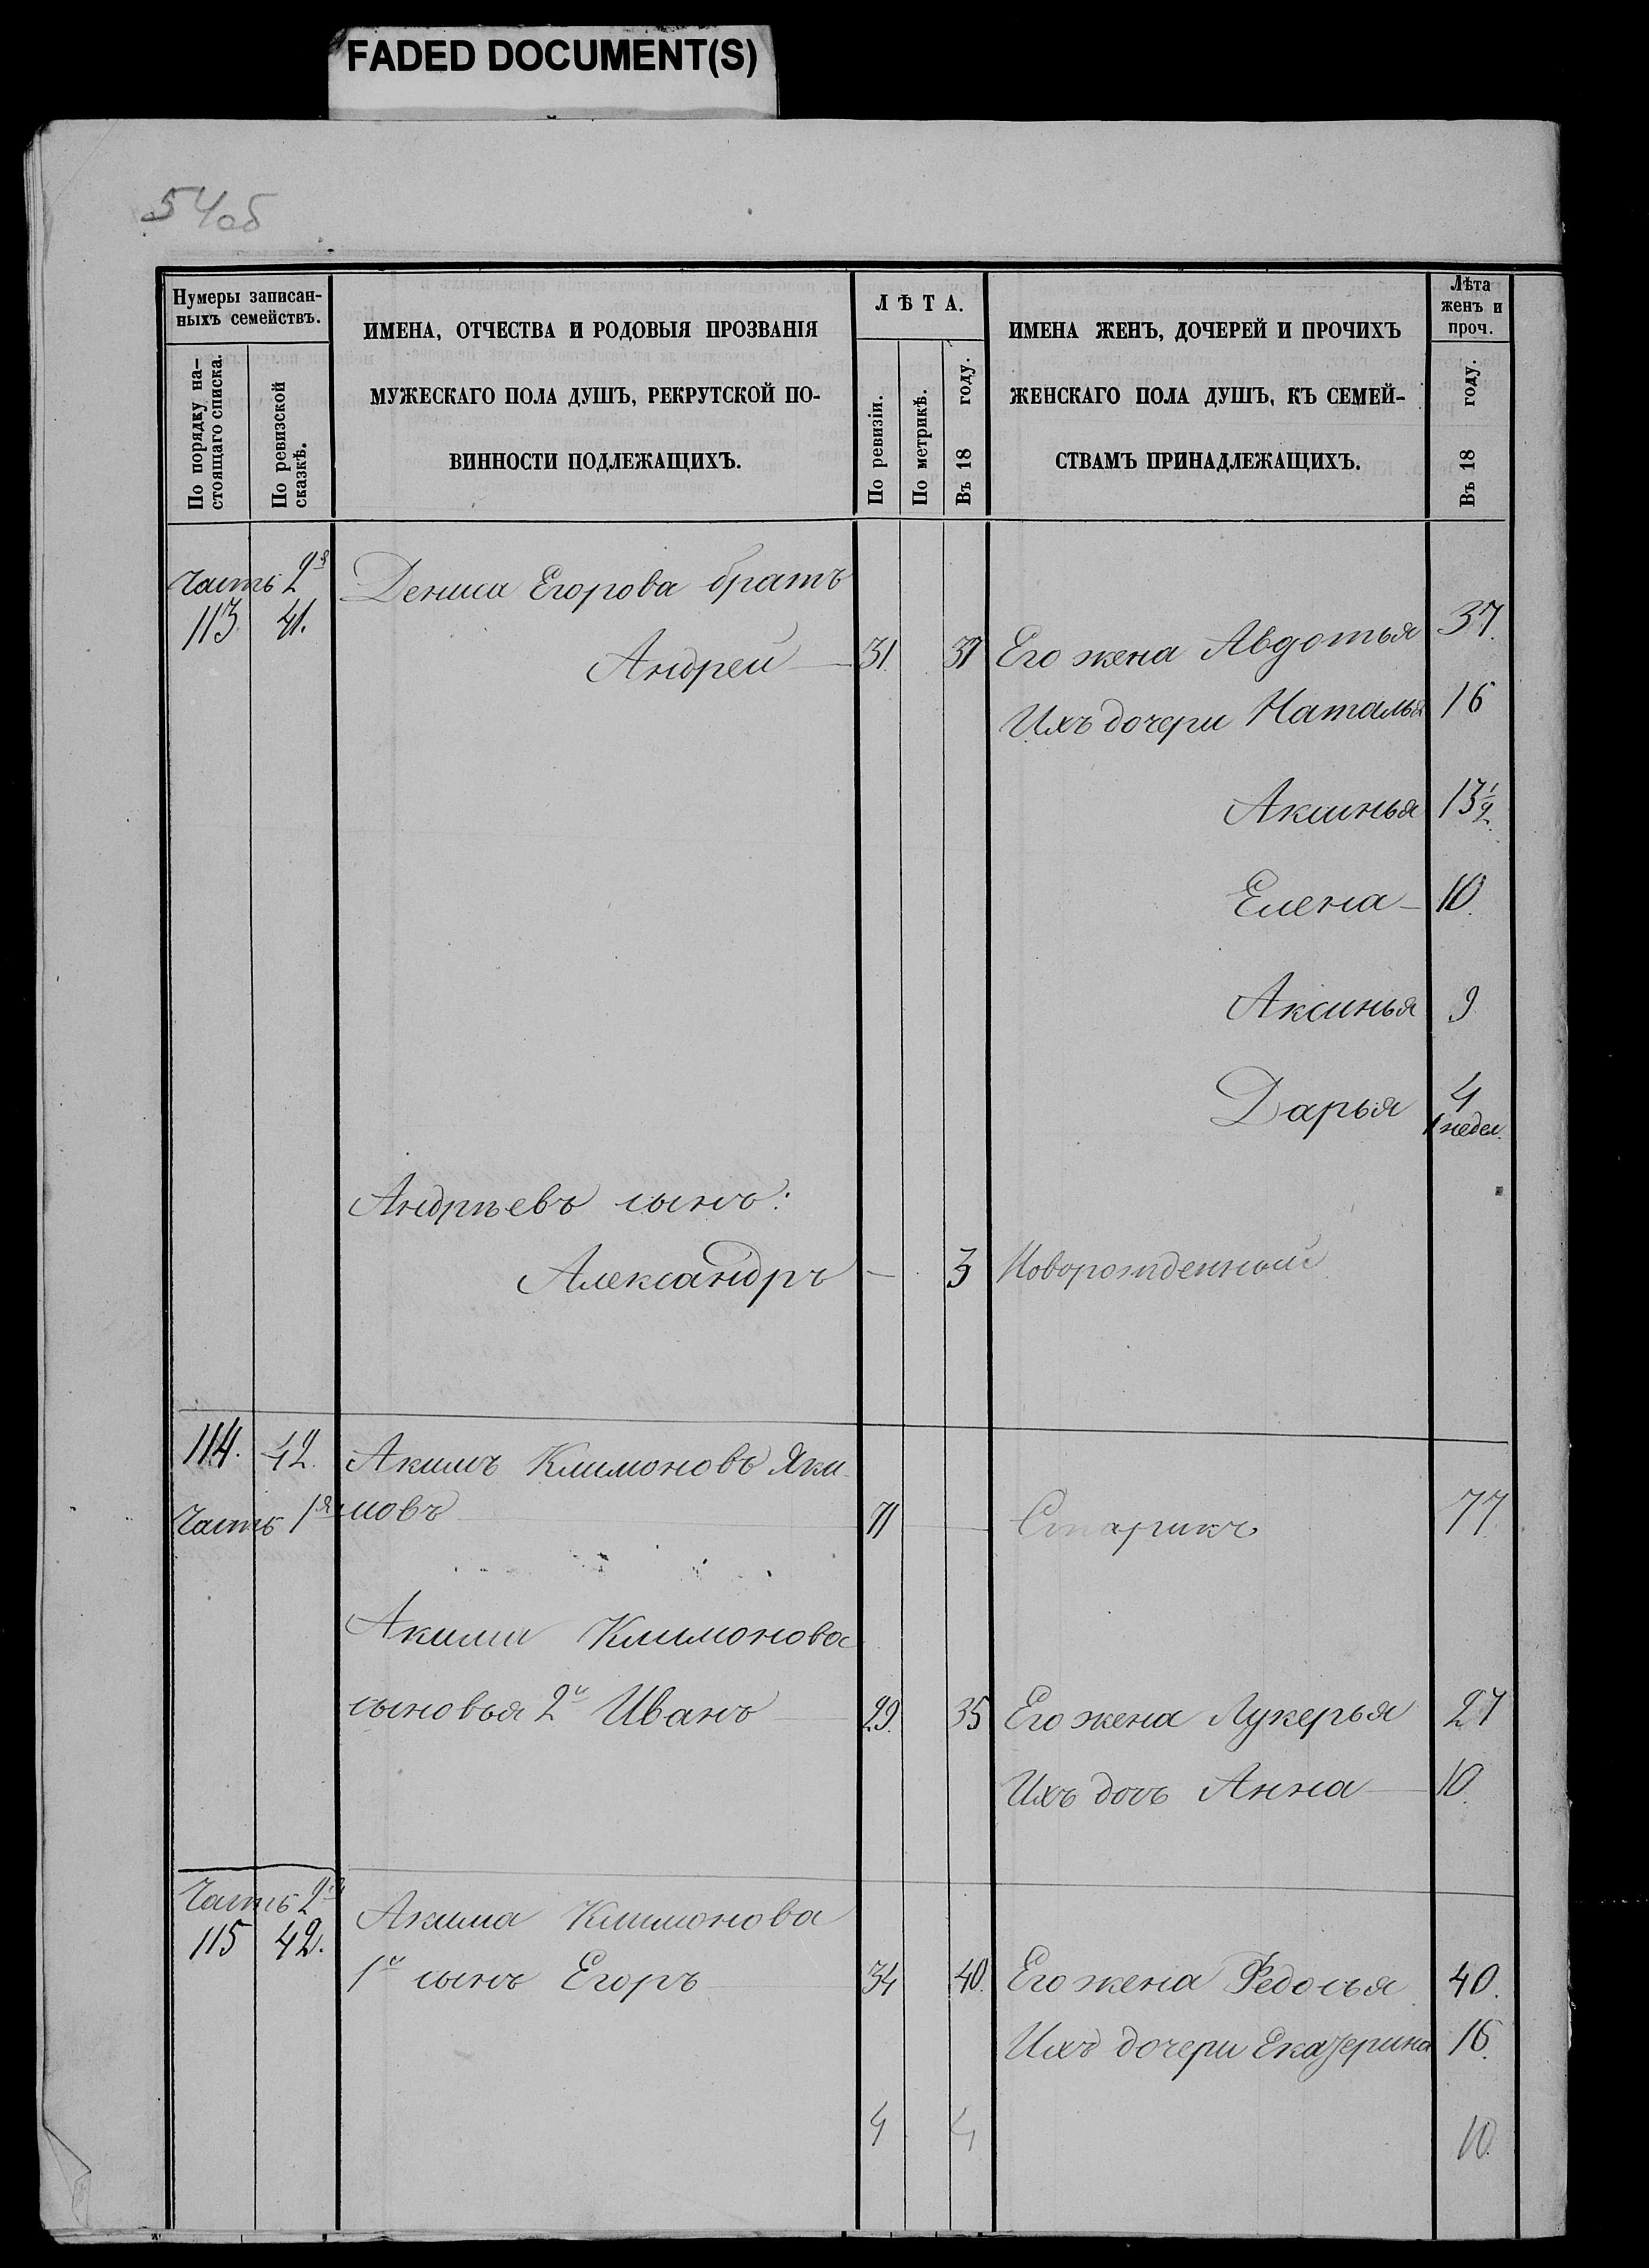 FADED DOCUMENT(S)
54об
Нумеры записан-
ныхъ семействъ.
По порядку на-
стоящаго списка.
По ревизской
сказкѣ.
ИМЕНА, ОТЧЕСТВА И РОДОВЫЯ ПРОЗВАНІЯ
МУЖЕСКАГО ПОЛА ДУШЪ, РЕКРУТСКОЙ ПО-
ВИННОСТИ ПОДЛЕЖАЩИХЪ.
ЛѢТА.
По ревизіи.
По метрикѣ.
Въ 18 году.
ИМЕНА ЖЕНЪ, ДОЧЕРЕЙ И ПРОЧИХЪ
ЖЕНСКАГО ПОЛА ДУШЪ, КЪ СЕМЕЙ-
СТВАМЪ ПРИНАДЛЕЖАЩИХЪ.
Лѣта
женъ и
проч.
Въ 18 году.
Часть 2я Дениса Егорова братъ
113. 41.
Андрей — 31. 37 Его жена Авдотья 37.
Ихъ дочери Наталья 16
Аксинья 13 1/2
Елена — 10.
Аксинья 9
Дарья 4
недел.
Андреевъ сынъ:
Александръ — 3 Новорожденный
114. 42. Акимъ Климоновъ Яки-
Часть 1я мовъ 71 — Старикъ 77
Акима Климонова
сыновья 2й Иванъ 29. 35 Его жена Лукерья 27
Ихъ дочь Анна — 10.
Часть 2я Акима Климонова
115 42.
1й сынъ Егоръ 34 40. Его жена Федосья 40.
Ихъ дочери Екатерина 16.
4 4 10.